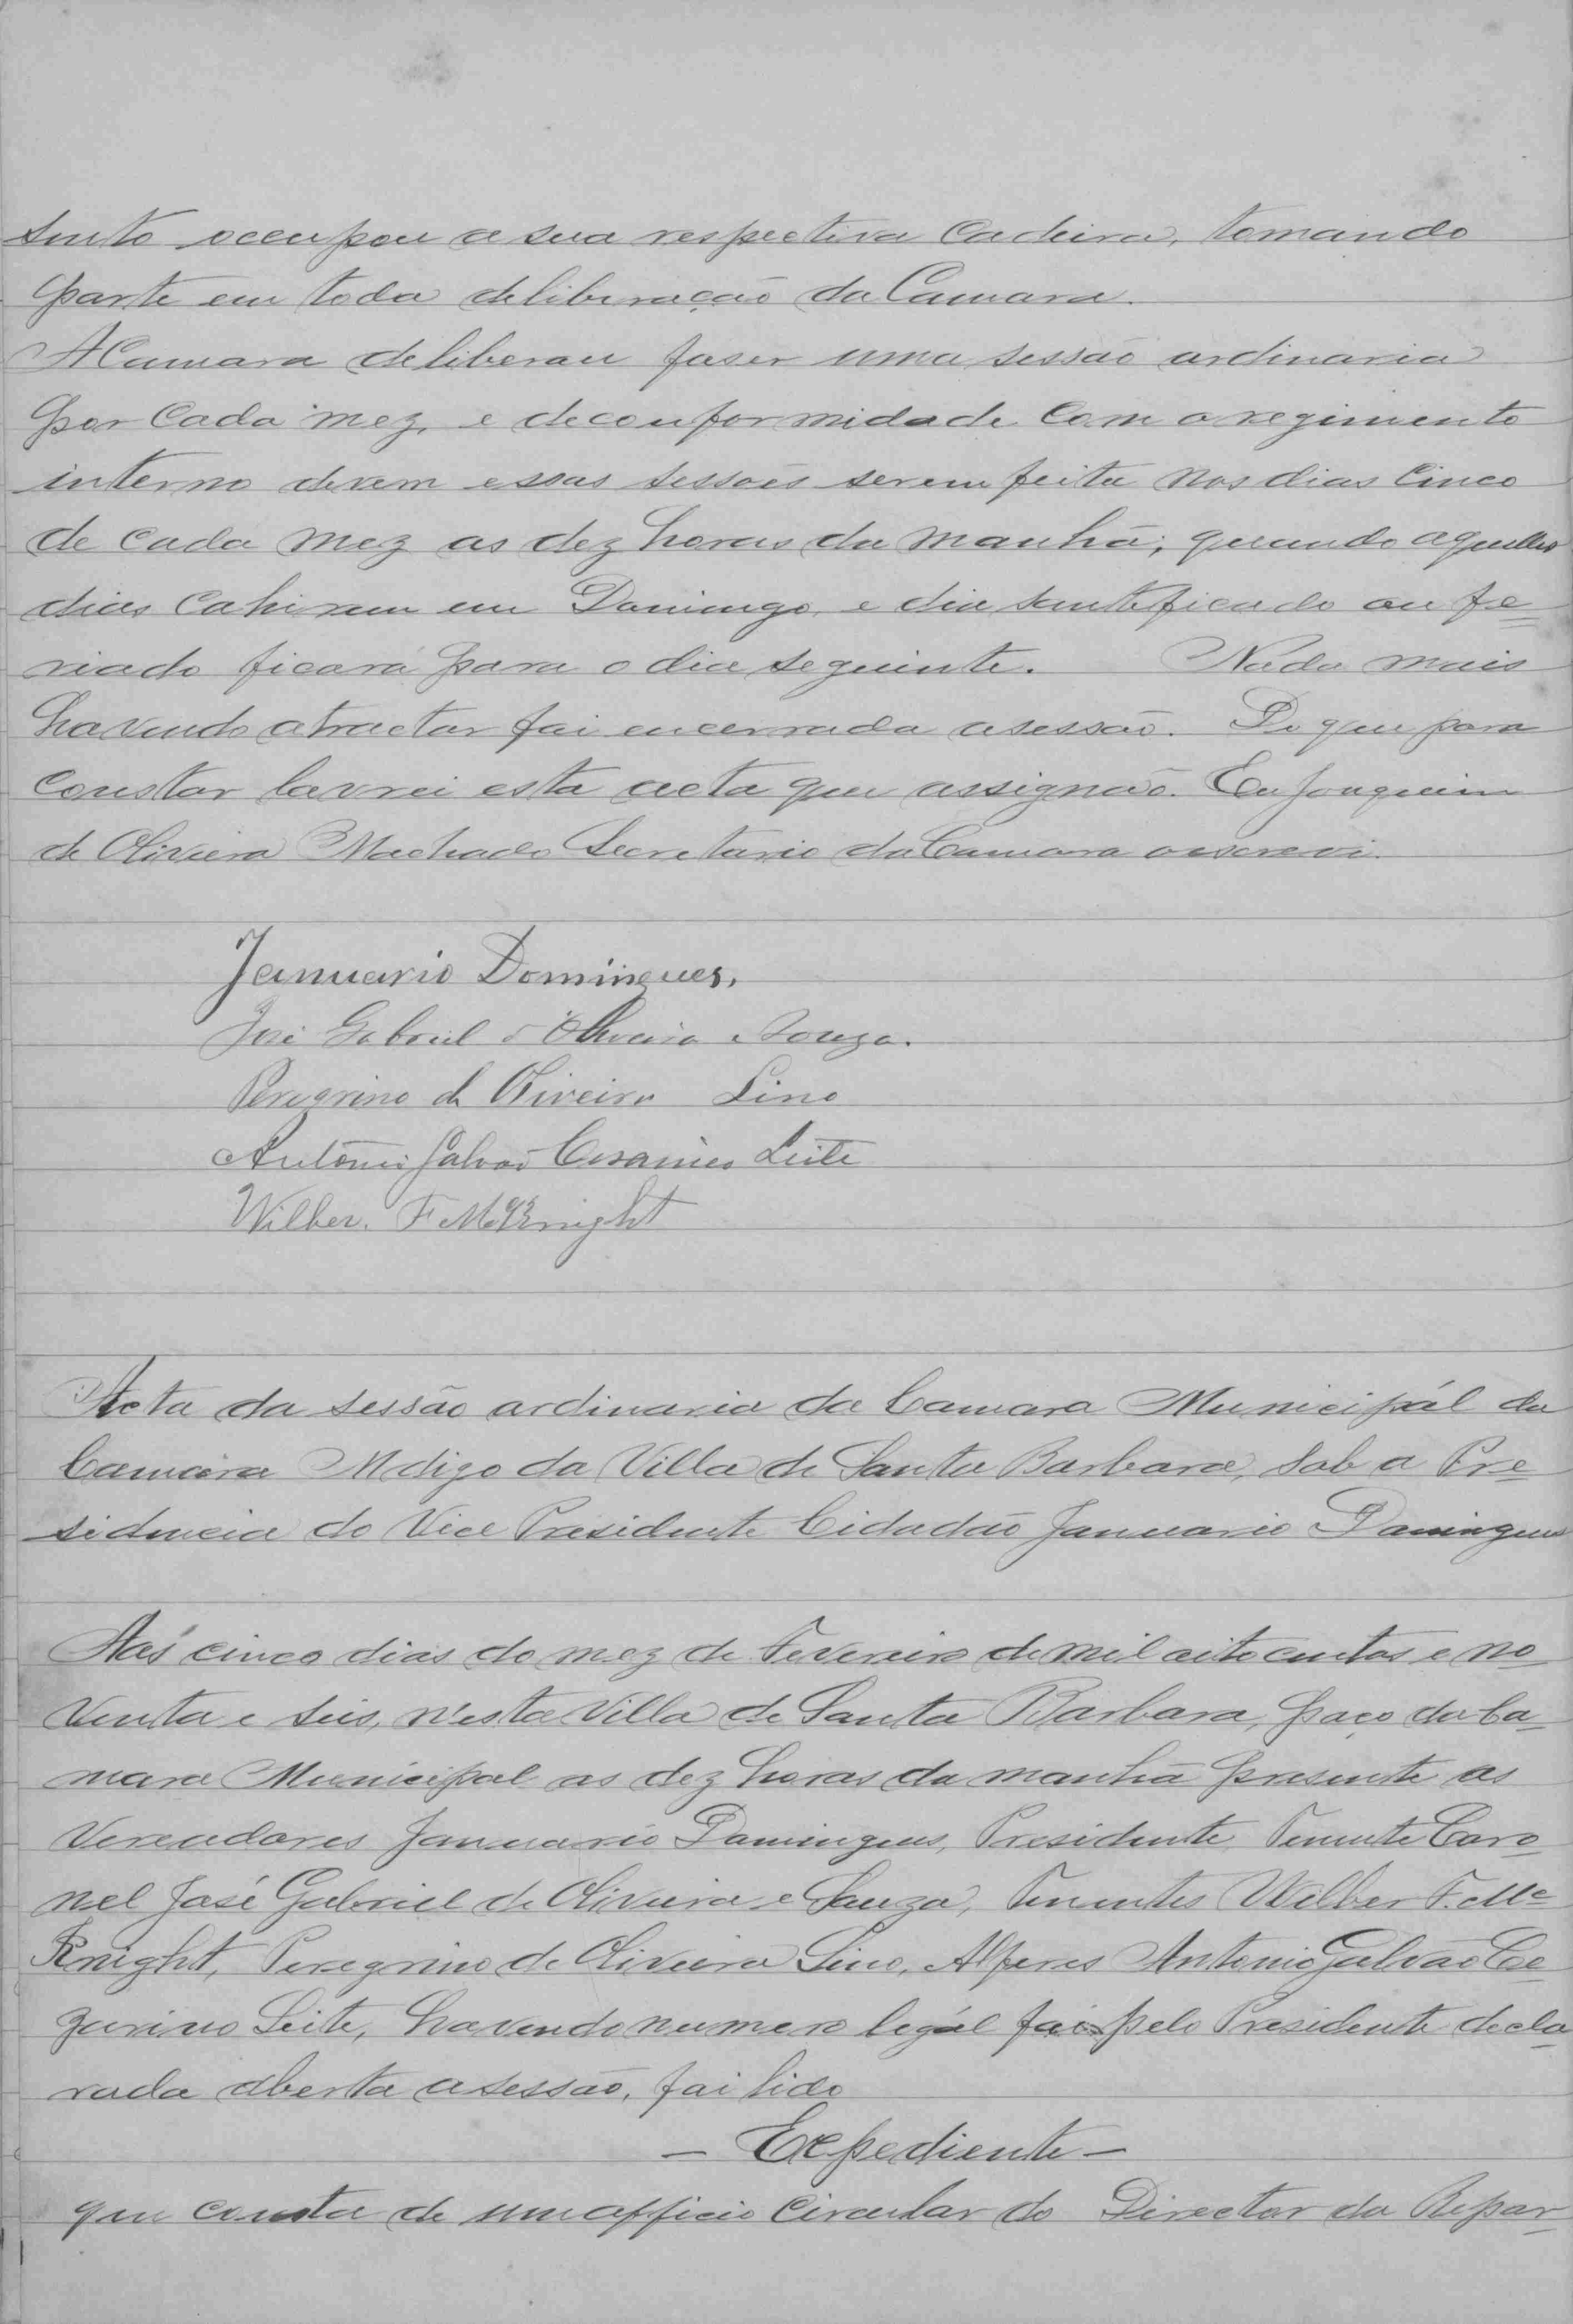 sento occupou a sua respectiva Cadeira, tomando
parte em toda deliberação da Camara.
A Camara deliberou faser uma sessão ordinaria
por Cada mez, e de conformidade com o regimento
interno devem essas sessoẽs serem feita nos dias Cinco
de cada mez as dez horas da manhã; quando aquelles
dias Cahirem em Domingo, e dia santeficado ou fe=
riado ficará para o dia seguinte. Nada mais
havendo a tractar foi encerrada a sessão. Do que para
Constar lavrei esta acta que assignão. Eu Joaquim
de Oliveira Machado Secretario da Camara o escrevi.
Januario Domingues.
José Gabriel d'Oliveira e Souza.
Peregrino de Oliveira Lino
Antonio Galvão Cesarino Leite
Wilber. F McKnight
Acta da sessão ordinaria da Camara Municipál da
Camara M digo da Villa de Santa Barbara, sob a Pre=
sidencia do Vice Presidente Cidadão Januario Domingues
Aos cinco dias do mez de Fevereiro de mil oito centos e no=
venta e seis, n'esta Villa de Santa Barbara, paço da Ca=
mara Municipal as dez horas da manhã presente os
Vereadores Januario Domingues, Presidente, Tenente Coro=
nel José Gabriel de Oliveira e Souza, Tenentes Wilber F. Mc
Knight, Peregrino de Oliveira Lino, Alferes Antonio Galvão Ce=
zarino Leite, havendo numero legál foi pelo Presidente decla=
rada aberta a sessão, foi lido
— Expediente —
que consta de um officio Circular do Director da Repar=